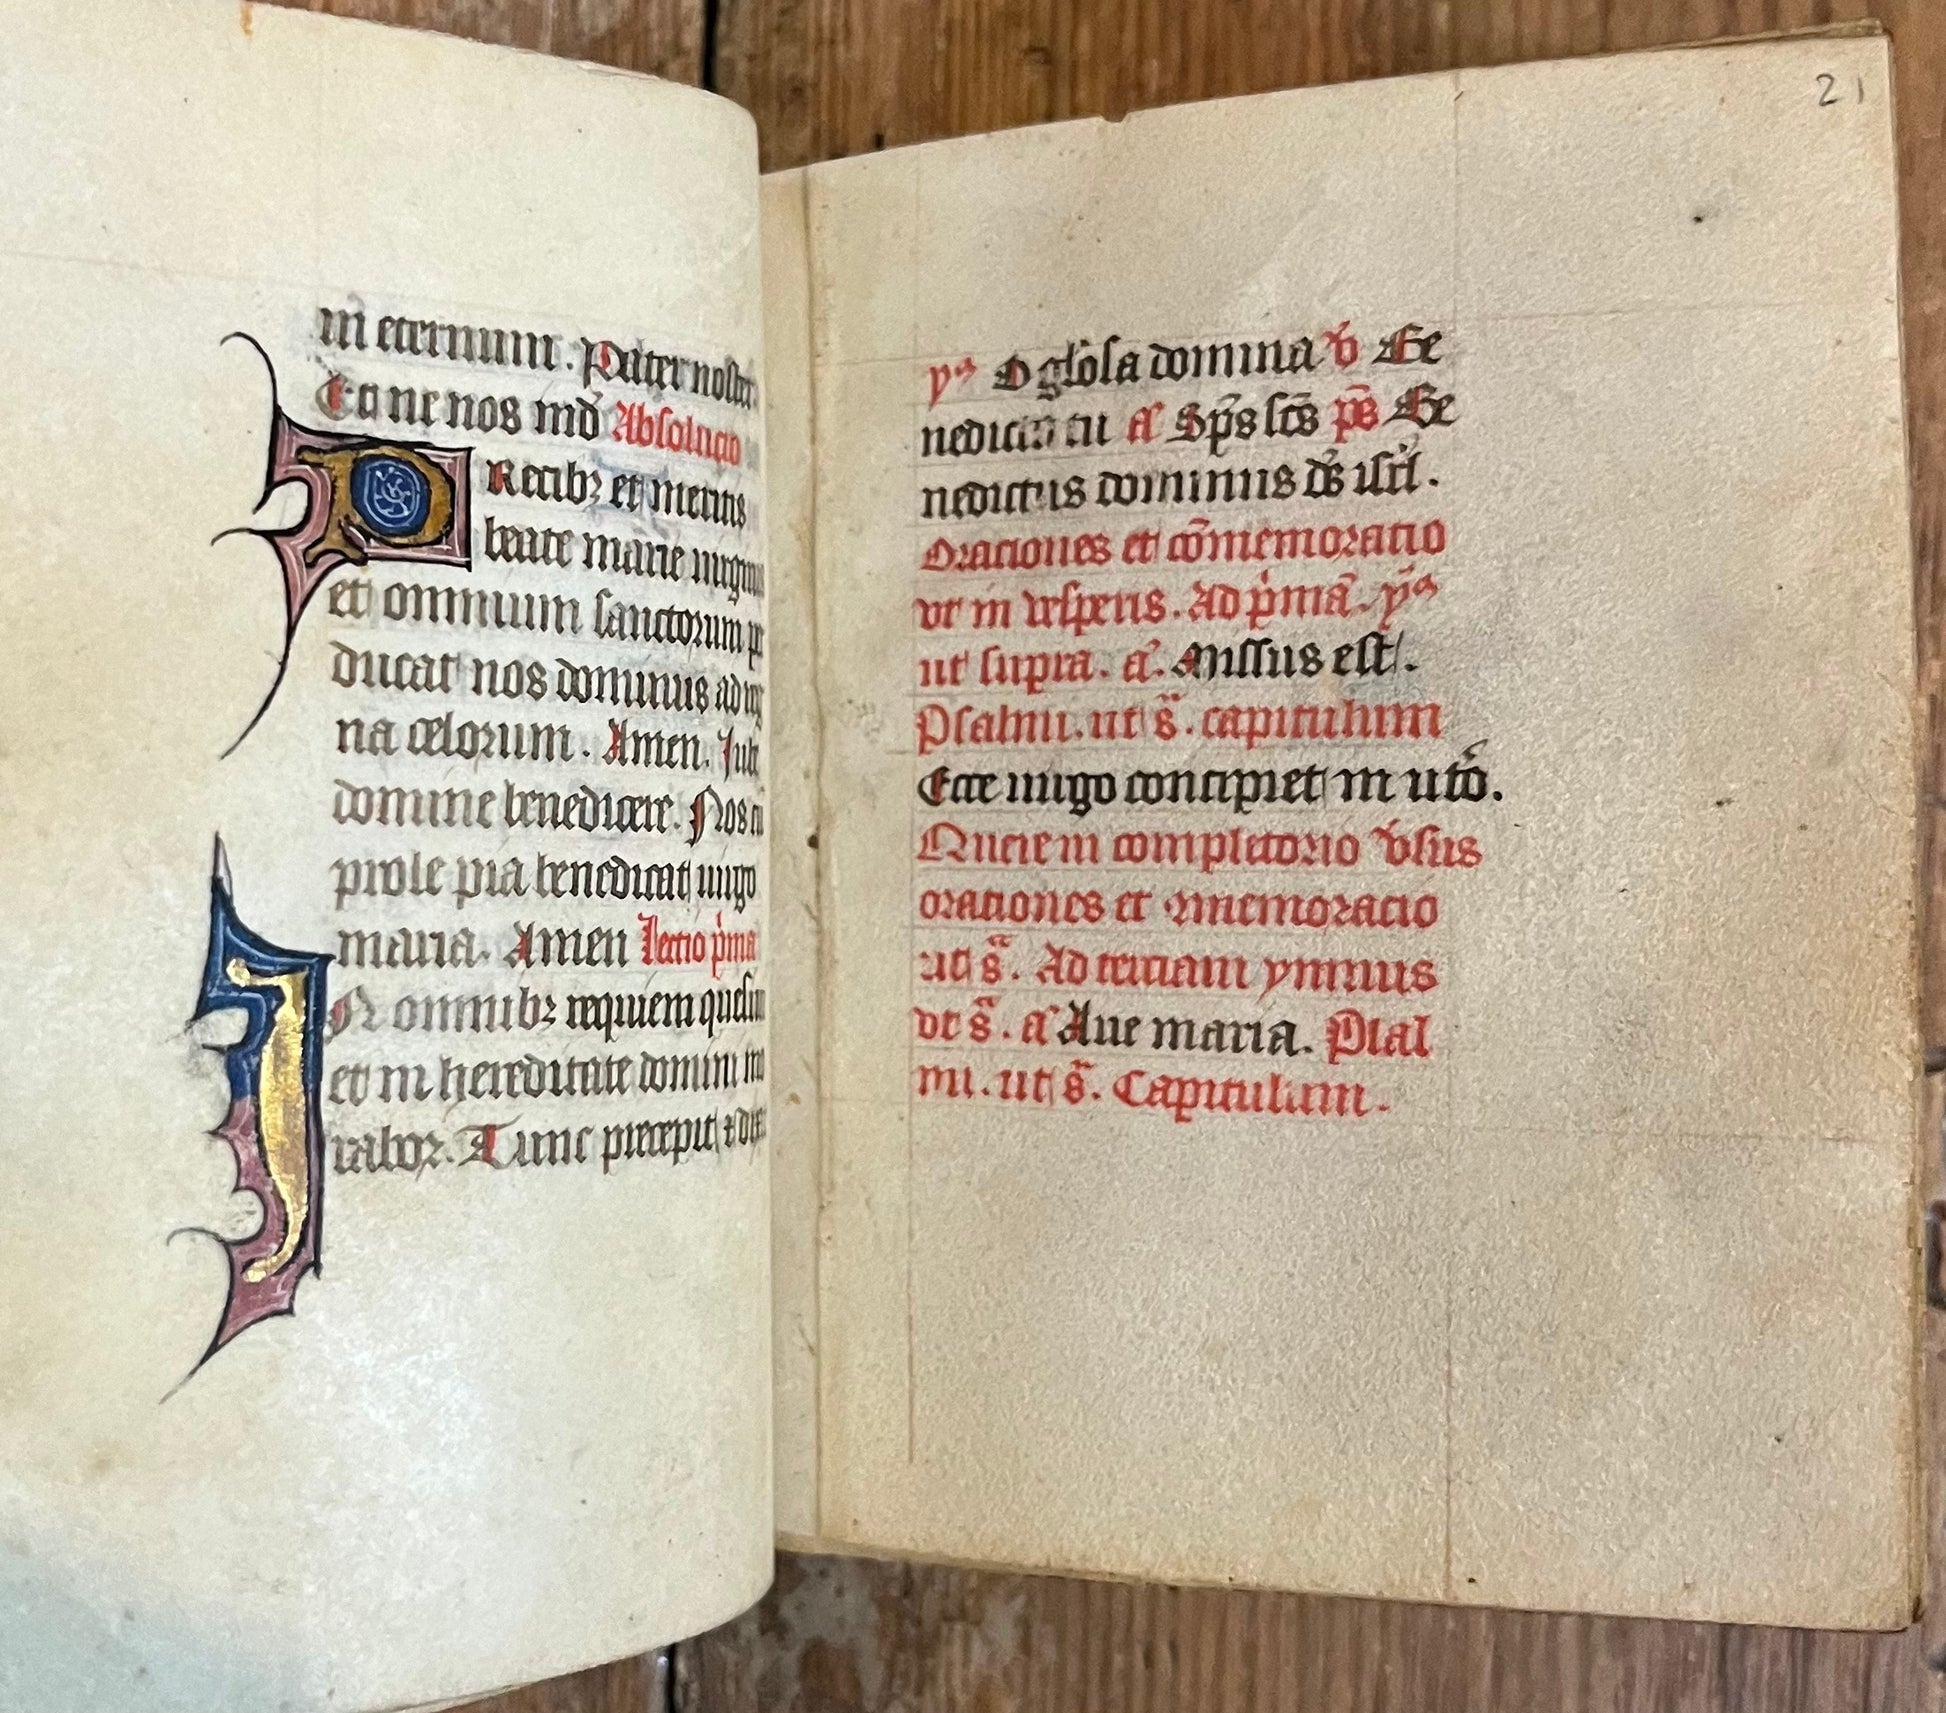 in eternum. Pater noster.
Et ne nos ind̄ Absolucio
PRecibꝫ et meritis
beate marie uirginis
et omnium sanctorum per
ducat nos dominus ad reg
na celorum. Amen. Iube
domine benedicere. Nos cū
prole pia benedicat uirgo
maria. Amen Lectio p̓ma
IN omnibꝫ requiem quesiui
et in hereditate domini mo
rabor. Tunc precepit ⁊ dix
21
yᵃ O gl̓osa domina v̓ Be
nedicta tu a᷑ Sp̄s sc̄s p̄s Be
nedictus dominus ds̄ isr̄l.
Oraciones et cōmemoracio
ut in vesperis. Ad p̓mā. ỹᵃ
ut supra. a᷑. Missus est.
Psalmi. ut sᵃ. capitulum
Ecce uirgo concipiet in utō.
Require in completorio v̓sus
oraciones et memoracio
ut sᵃ. Ad terciam ymnus
vt sᵃ. a᷑ Aue maria. Psal
mi. ut sᵃ. Capitulum.